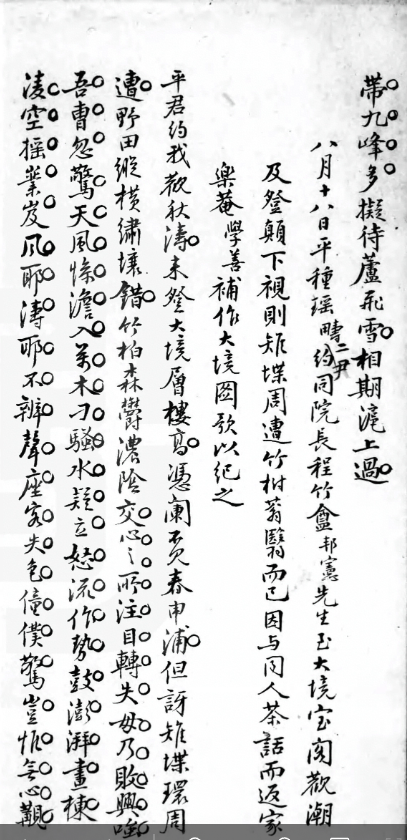 帶九峰多擬待蘆飛雪相期滬上過
八月十八日平種瑶疇二尹約同院長程竹盦邦憲先生至大境宝閣觀潮
及登顛下視則雉堞周遭竹樹蓊翳而已因与同人茶話而返家
樂菴學善補作大境圖歌以紀之
平君約我觀秋濤未登大境層樓高憑闌不見春申浦但訝雉堞環周
遭野田縱橫繡壤錯竹柏森鬱濃陰交心之所注目轉失毋乃敗興嗤
吾曹忽驚天風條澹入萬木刁騷水疑立怒流作勢鼓澎湃畫棟
淩空搖業岌風耶濤耶不辨聲座客失色僮僕驚豈惟無心觀